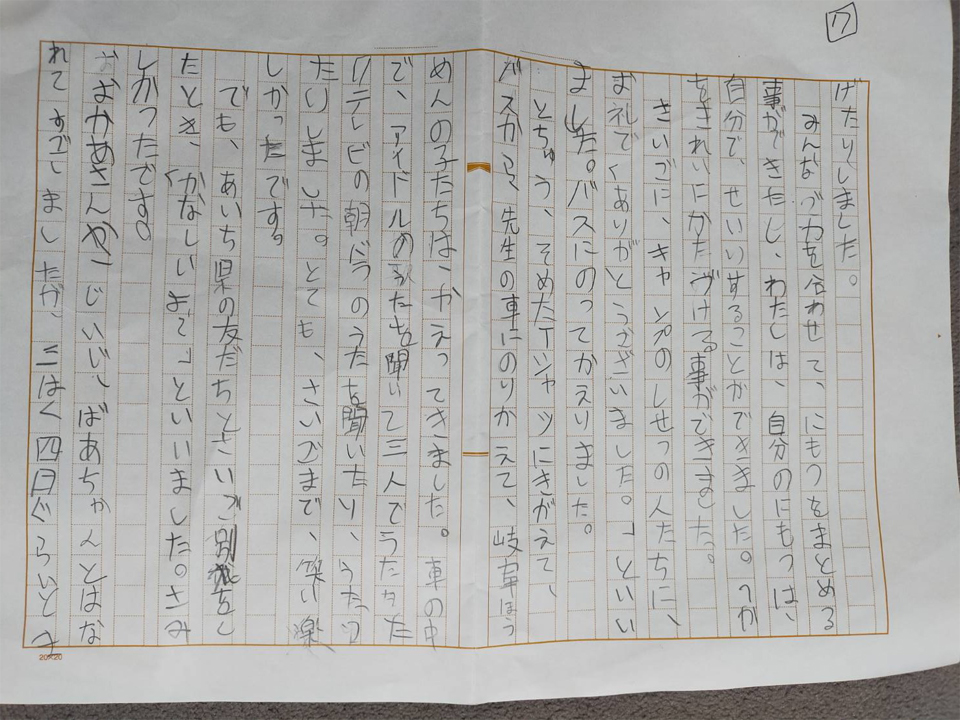 17
げたりしました。
みんなで力を合わせて、にもつをまとめる
事ができたし、わたしは、自分のにもつは、
自分で、せいりすることができました。へや
をきれいにかたづける事ができました。
さいごに、キャンプのしせつの人たちに、
お礼で「ありがとうございました。」といい
ました。バスにのってかえりました。
とちゅう、そめたTシャツにきがえて、
バスから、先生の車にのりかえて、岐阜ほう
めんの子たちは、かえってきました。車の中
で、アイドルのうたを聞いて三人でうたった
り、テレビの朝ドラのうたを聞いたり、うたっ
たりしました。とても、さいごまで、笑い楽
しかったです。
でも、あいち県の友だちとさいご別れをし
たとき、「かなしいよ〜」といいました。さみ
しかったです。
おかあさんやじいじ、ばあちゃんとはな
れてすごしましたが、三ぱく四日ぐらいとき
20×20